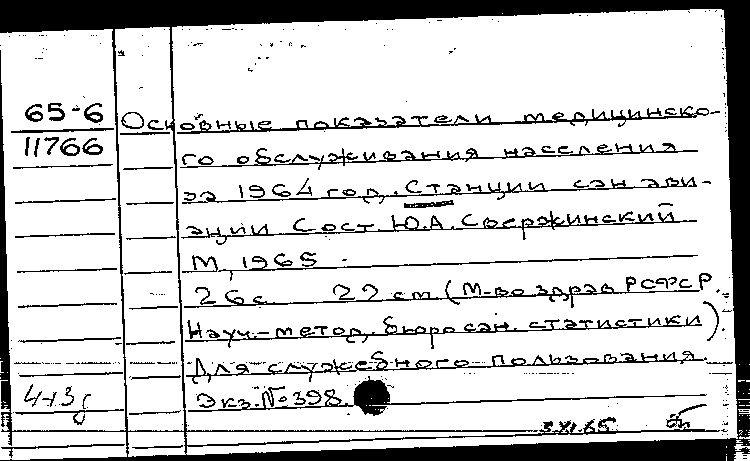 65-6
11766
Основные показатели медицинско-
го обслуживания населения
за 1964 год. Станции сан ави-
ации Сост. Ю.А. Свержинский
М, 1965
26 с. 22 cm (М-во здрав РСФСР.
Науч.-метод. бюро сан. статистики)
Для служебного пользования.
Экз. № 398.
3.XI.65